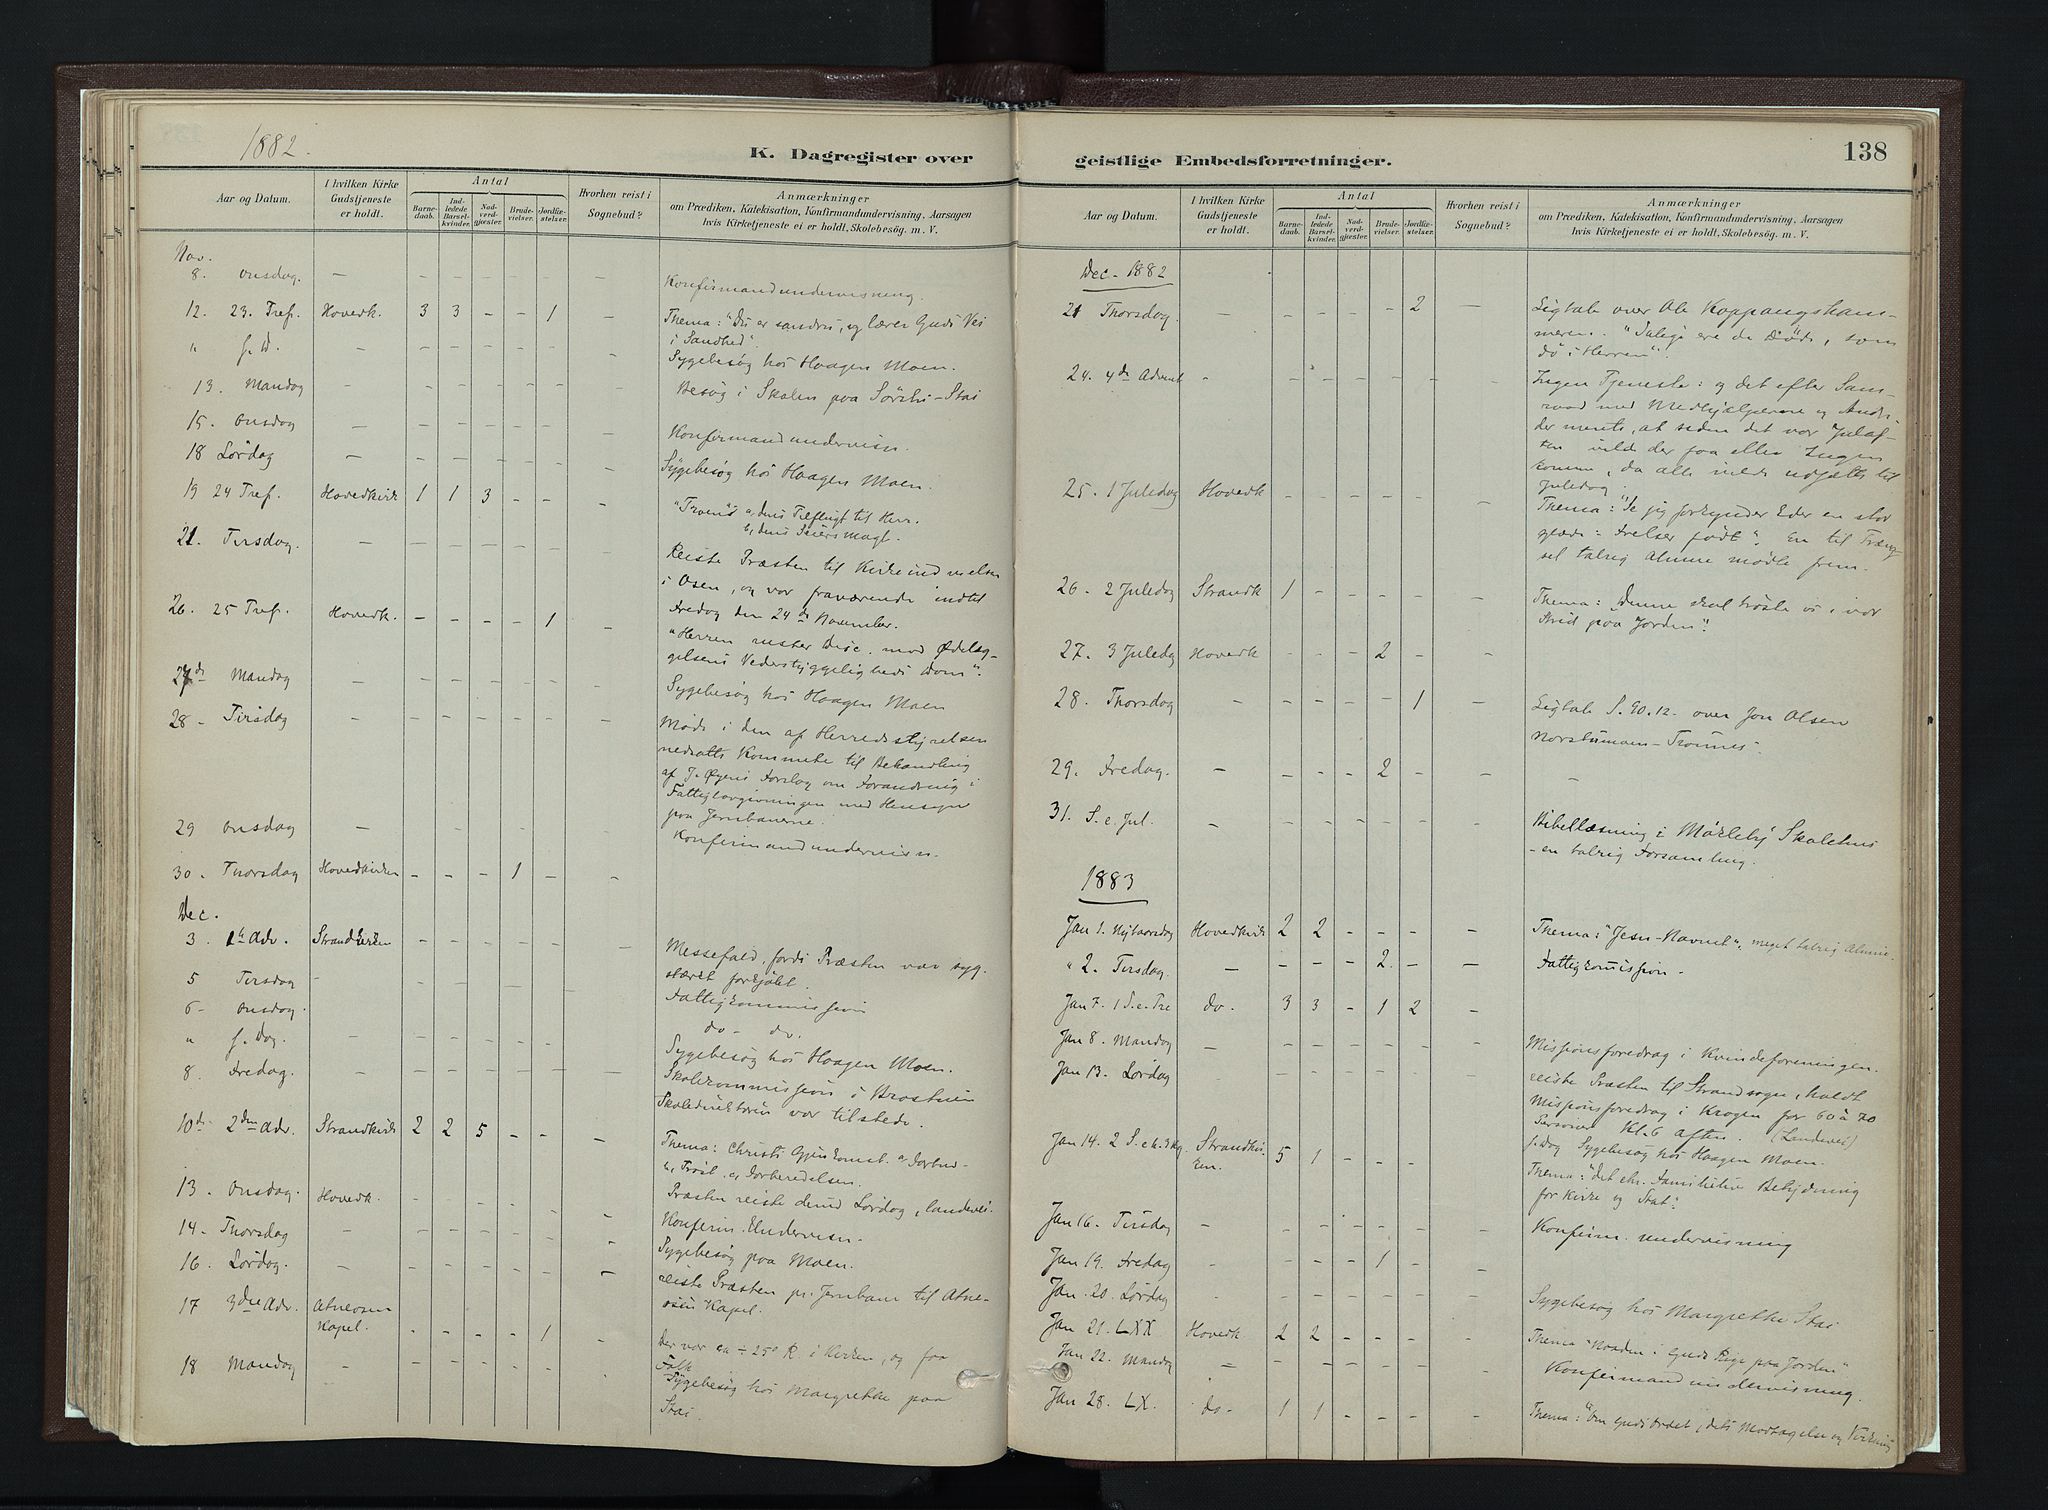 1882.
K. Dagregister over
Aar og Datum.
I hvilken Kirke Gudstjeneste er holdt.
Antal
Barne-daab.
Ind-ledede Barsel-kvinder.
Nad-verd-gjester.
Brude-vielser.
Jordfæ-stelser.
Hvorhen reist i Sognebud?
Anmærkninger
om Prædiken, Katekisation, Konfirmandundervisning, Aarsagen
hvis Kirketjeneste ei er holdt, Skolebesøg. m. V.
Nov.
8. Onsdag. — – – – – – — Konfirmandundervisning.
12. 23. Tref. Hovedk. 3 3 – – 1 – Thema: "Du er sanddru, og lærer Guds Vei
i Sandhed".
" f. D. – – – – – – – Sygebesøg hos Haagen Moen.
13. Mandag – – – – – – – Besøg i Skolen paa Sörstu-Stai
15. Onsdag – – – – – – – Konfirmandundervisn.
18 Lørdag – – – – – – – Sygebesøg hos Haagen Moen.
19 24 Tref. Hovedkirk 1 1 3 – – – "Troens" a, dens Tilflugt til Herr.
b, dens Seiers Magt.
21. Tirsdag. – – – – – – – Reiste Præsten til Kirkeindvielsen
i Osen, og var fraværende indtil
Fredag den 24de November.
26. 25 Tref. Hovedk. – – – – 1 –
"Herren ruster Disc. mod Ødelæg-
gelsens Vederstyggeligheds Dom".
27de Mandag – – – – – – – Sygebesøg hos Haagen Moen
28 – Tirsdag – – – – – – – Møde i den af Herredsstyrelsen
nedsatte Kommite til Behandling
af J. Øyens Forslag om Forandring i
Fattiglovgivningen med Hensyn
paa Jernbanerne.
29 Onsdag – – – – – – – Konfirmandundervisn.
30. Thorsdag Hovedkirken – – – 1 – –
Dec.
3. 1ste Adv. Strandkirken – – – – – – Messefald, fordi Præsten var syg.
stærkt forkjølet.
5 Tirsdag – – – – – – Fattigkommission
6 – Onsdag. do – do.
" f. Dag. – – – – – – Sygebesøg hos Haagen Moen.
8. Fredag. – – – – – – – Skolekommission i Brostuen
Skoledirektøren var tilstede.
10de 2den Adv. Strandkirk 2 2 5 – – – Thema: Christi Gjenkomst. a, Forbud –
b, Trøst. c, Forberedelsen.
Præsten reiste derned Lördag, landevei.
13. Onsdag. Hovedk. – – – – – – Konfirm. Undervisn.
14 – Thorsdag – – – – – – – Sygebesøg paa Moen.
16. Lørdag. – – – – – – – reiste Præsten pr. Jernbane til Atne-
osen Kapel.
17 3die Adv. Atneosen
Kapel. – – – – 1 – Der var ca ÷ 25° R. i Kirken, og faa
Folk
18 Mandag – – – – – – Sygebesøg hos Margrethe paa
Stai.
geistlige Embedsforretninger.
138
Aar og Datum.
I hvilken Kirke Gudstjeneste er holdt.
Antal
Barne-daab.
Ind-ledede Barsel-kvinder.
Nad-verd-gjester.
Brude-vielser.
Jordfæ-stelser.
Hvorhen reist i Sognebud?
Anmærkninger
om Prædiken, Katekisation, Konfirmandundervisning, Aarsagen
hvis Kirketjeneste ei er holdt, Skolebesøg. m. V.
Dec. 1882
21 Thorsdag. – – – – – 2 — Ligtale over Ole Koppangskam-
meren. "Salige ere de Döde, som
dö i Herren".
24. 4de Advent – – – – – – – Ingen Tjeneste: og det efter Sam-
raad med Medhjælperne og Andre
der mente, at siden det var Juleaf-
ten vilde der faa eller Ingen
komme, da alle vilde udhvile til
Juledag.
25. 1 Juledag Hovedk – – – – – – Thema: "Se jeg forkynder Eder en stor
glæde: Frelser født". En til Træng-
sel talrig Almue mødte frem.
26. 2 Juledag Strandk 1 – – – – – Thema: "Denne skal trøste os i vor
Strid paa Jorden".
27. 3 Juledg Hovedk – – – 2 – –
28. Thorsdag – – – – – 1 – Ligtale S. 90.12. over Jon Olsen
Norstumoen – Trønnes.
29. Fredag. – – – – 2 – – –
31. S. e. Jul. – – – – – – – Bibellæsning i Mörleby Skolehus
– en talrig Forsamling.
1883
Jan 1. Nytaarsdag Hovedkirk 2 2 – – – – Thema: "Jesu-Navnet", meget talrig Almue.
" 2. Tirsdag. — – – – 2 – — Fattigkommission.
Jan 7. 1 S. e. Tre do. 3 3 – 1 2 –
Jan 8. Mandag – – – – – – – Missionsforedrag i Kvindeforeningen.
Jan 13. Lørdag – – – – – – reiste Præsten til Strandsogn, holdt
Missionsforedrag i Krogen for 60 à 70
Personer Kl. 6 aften. (Landevei)
f. Dag Sygebesøg hos Haagen Moen.
Jan 14. 2 S. e h. 3 Kg. Strandkir
ken. 5 1 – – – Thema: "det chr. Familielivs Betydning
for Kirke og Stat".
Jan 16. Tirsdag – – – – – – – Konfirm. undervisning
Jan 19. Fredag – – – – 1 – –
Jan. 20. Lørdag – – – – – – – Sygebesøg hos Margrethe Stai
Jan 21. LXX Hovedk. 2 2 – – – – Thema "Naaden i Guds Rige paa Jorden"
Jan 22. Mandag – – – – – – – Konfirmandundervisning.
Jan 28. LX. do – 1 1 – – – – Thema: "Om Guds Ordet, dets Modtagelse og Virkning